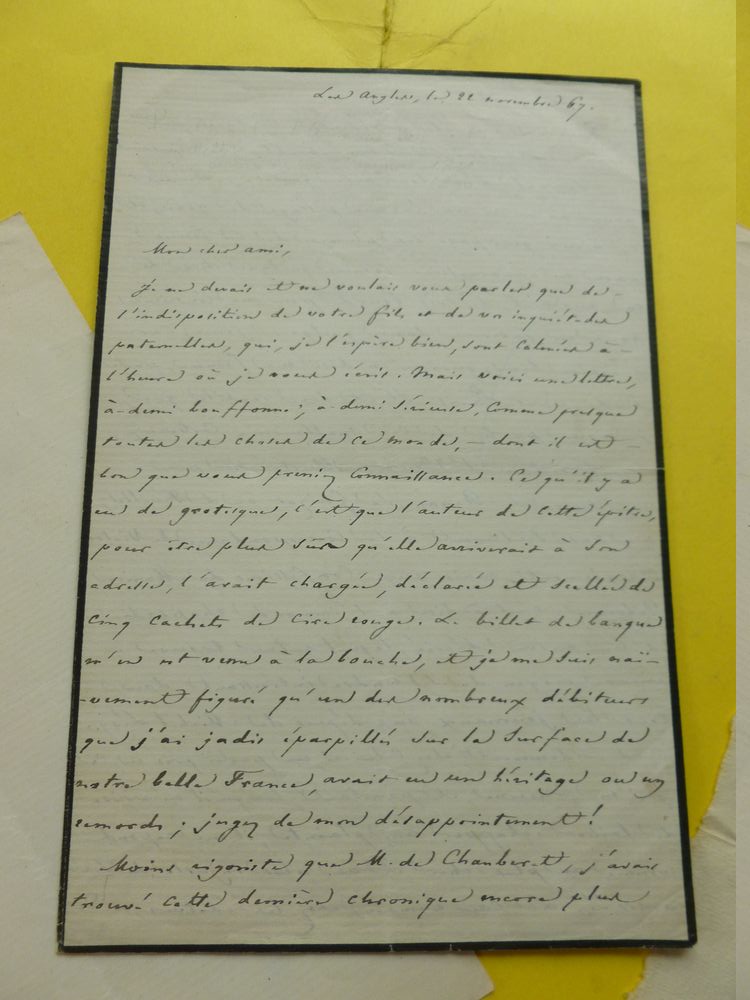 Les Angles, le 22 novembre 67.
Mon cher ami,
Je ne devais et ne voulais vous parler que de
l'indisposition de votre fils et de vos inquiétudes
paternelles, qui, je l'espère bien, sont calmées à
l'heure où je vous écris. Mais voici une lettre,
à-demi bouffonne, à-demi sérieuse, comme presque
toutes les choses de ce monde, – dont il est
bon que vous preniez connaissance. Ce qu'il y a
eu de grotesque, c'est que l'auteur de cette épitre,
pour être plus sûre qu'elle arriverait à son
adresse, l'avait chargée, déclarée et scellée de
cinq cachets de cire rouge. Le billet de banque
m'en est venu à la bouche, et je me suis naï-
-vement figuré qu'un des nombreux débiteurs
que j'ai jadis éparpillés sur la surface de
notre belle France, avait eu un héritage ou un
remords ; jugez de mon désappointement !
Moins rigoriste que M. de Chauberet, j'avais
trouvé cette dernière chronique encore plus